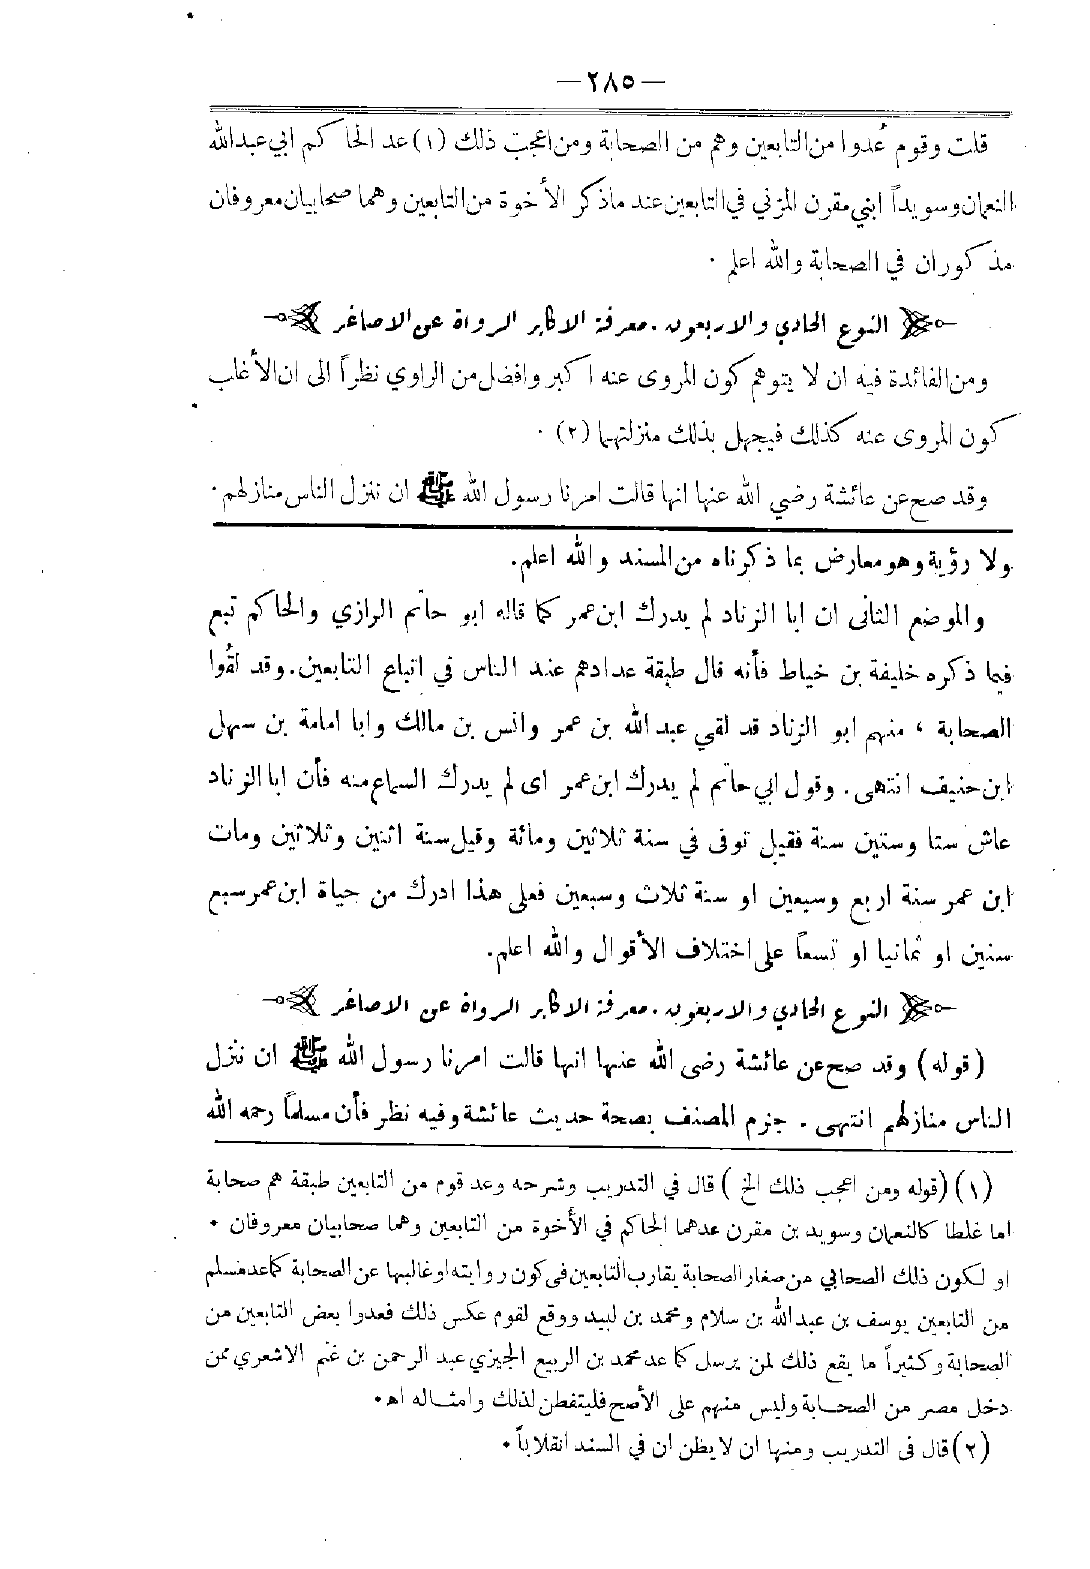 — ٢٨٥ —
قلت وقوم عُدوا من التابعين وهم من الصحابة ومن اعجب ذلك (١) عد الحاكم ابي عبدالله
النعمان وسويداً ابني مقرن المزني في التابعين عند ما ذكر الأخوة من التابعين وهما صحابيان معروفان
مذكوران في الصحابة والله اعلم ٠
النوع الحادي والاربعون . معرفة الاكابر الرواة عن الاصاغر
ومن الفائدة فيه ان لا يتوهم كون المروى عنه اكبر وافضل من الراوي نظراً الى ان الأغلب
كون المروى عنه كذلك فيجهل بذلك منزلتهما (٢) ٠
وقد صح عن عائشة رضي الله عنها انها قالت امرنا رسول الله ﷺ ان ننزل الناس منازلهم ٠
ولا رؤية وهو معارض بما ذكرناه من المسند والله اعلم.
والموضع الثانى ان ابا الزناد لم يدرك ابن عمر كما قاله ابو حاتم الرازي والحاكم تبع
فيما ذكره خليفة بن خياط فأنه قال طبقة عدادهم عند الناس في اتباع التابعين. وقد لقُوا
الصحابة ، منهم ابو الزناد قد لقي عبد الله بن عمر وانس بن مالك وابا امامة بن سهل
ابن حنيف انتهى. وقول ابي حاتم لم يدرك ابن عمر اى لم يدرك السماع منه فأن ابا الزناد
عاش ستا وستين سنة فقيل توفى في سنة ثلاثين ومائة وقيل سنة اثنين وثلاثين ومات
ابن عمر سنة اربع وسبعين او سنة ثلاث وسبعين فعلى هذا ادرك من حياة ابن عمر سبع
سنين او ثمانيا او تسعاً على اختلاف الأقوال والله اعلم.
النوع الحادي والاربعون . معرفة الاكابر الرواة عن الاصاغر
(قوله) وقد صح عن عائشة رضى الله عنها انها قالت امرنا رسول الله ﷺ ان ننزل
الناس منازلهم انتهى . جزم المصنف بصحة حديث عائشة وفيه نظر فأن مسلماً رحمه الله
(١) (قوله ومن اعجب ذلك الخ ) قال في التدريب وشرحه وعد قوم من التابعين طبقة هم صحابة
اما غلطا كالنعمان وسويد بن مقرن عدهما الحاكم في الأخوة من التابعين وهما صحابيان معروفان ٠
او لكون ذلك الصحابي من صغار الصحابة يقارب التابعين فى كون روايته او غالبها عن الصحابة كما عد مسلم
من التابعين يوسف بن عبد الله بن سلام ومحمد بن لبيد ووقع لقوم عكس ذلك فعدوا بعض التابعين من
الصحابة وكثيراً ما يقع ذلك لمن يرسل كما عد محمد بن الربيع الجيزي عبد الرحمن بن غنم الاشعري ممن
دخل مصر من الصحابة وليس منهم على الأصح فليتفطن لذلك وامثاله اه ٠
(٢) قال فى التدريب ومنها ان لا يظن ان في السند انقلاباً ٠